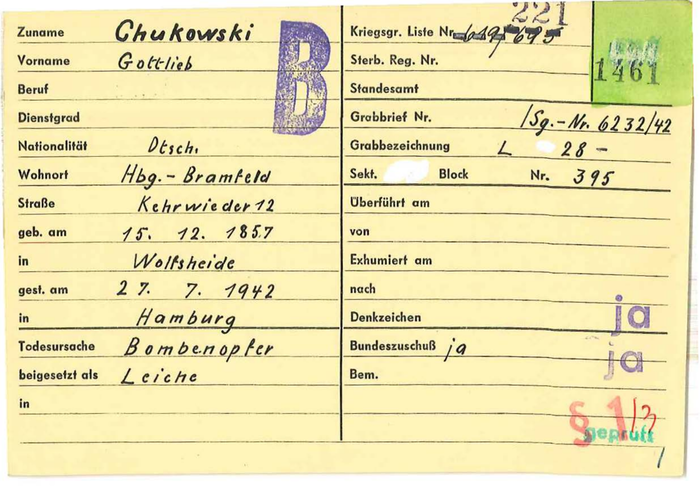 Zuname Chukowski
Vorname Gottlieb
Beruf
Dienstgrad
Nationalität Dtsch.
Wohnort Hbg.-Bramfeld
Straße Kehrwieder 12
geb. am 15. 12. 1857
in Wolfsheide
gest. am 27. 7. 1942
in Hamburg
Todesursache Bombenopfer
beigesetzt als Leiche
in
B
221
Kriegsgr. Liste Nr.
Sterb. Reg. Nr.
1461
Standesamt
Grabbrief Nr. /Sg.-Nr. 6232/42
Grabbezeichnung L 28 -
Sekt. Block Nr. 395
Überführt am
von
Exhumiert am
nach
Denkzeichen ja
Bundeszuschuß ja ja
Bem.
§ 1/3
geprüft